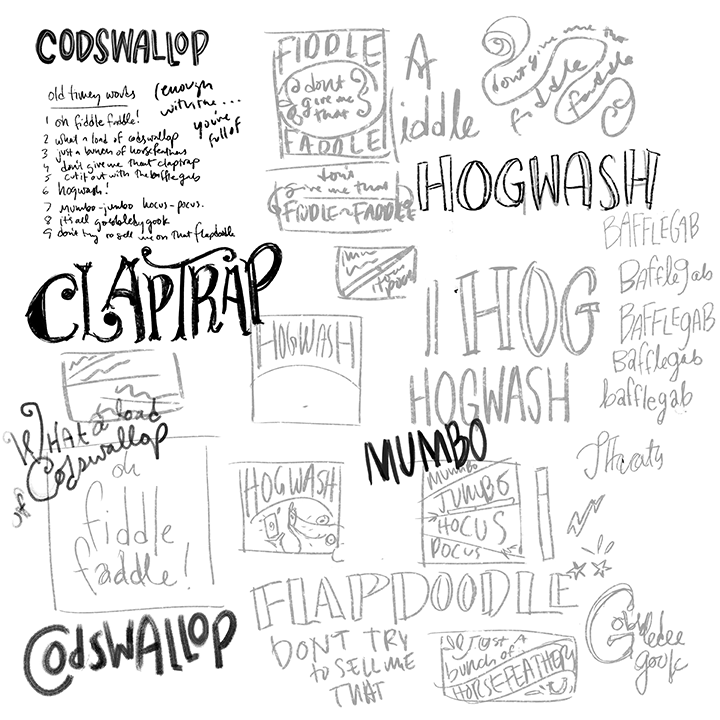 CODSWALLOP
old timey works
(enough with the...
you're full of
1 oh fiddle faddle!
2 what a load of codswallop
3 just a bunch of horsefeathers
4 don't give me that claptrap
5 cut it out with the bafflegab
6 hogwash!
7 mumbo-jumbo hocus-pocus.
8 it's all gobbledygook
9 don't try to sell me on that flapdoodle
FIDDLE
don't
give me
that
FADDLE
A
iddle
don't give me that
fiddle faddle
don't
give me that
FIDDLE-FADDLE
HOGWASH
BAFFLEGAB
Bafflegab
BAFFLEGAB
Bafflegab
bafflegab
CLAPTRAP
HOGWASH
HOG
HOGWASH
WHAT a load
of Codswallop
oh
fiddle
faddle!
HOGWASH
MUMBO
MUMBO
JUMBO
HOCUS
POCUS
FLAPDOODLE
DON'T TRY
to SELL ME
THAT
CODSWALLOP
JUST A
bunch of
HORSEFEATHERS
gook